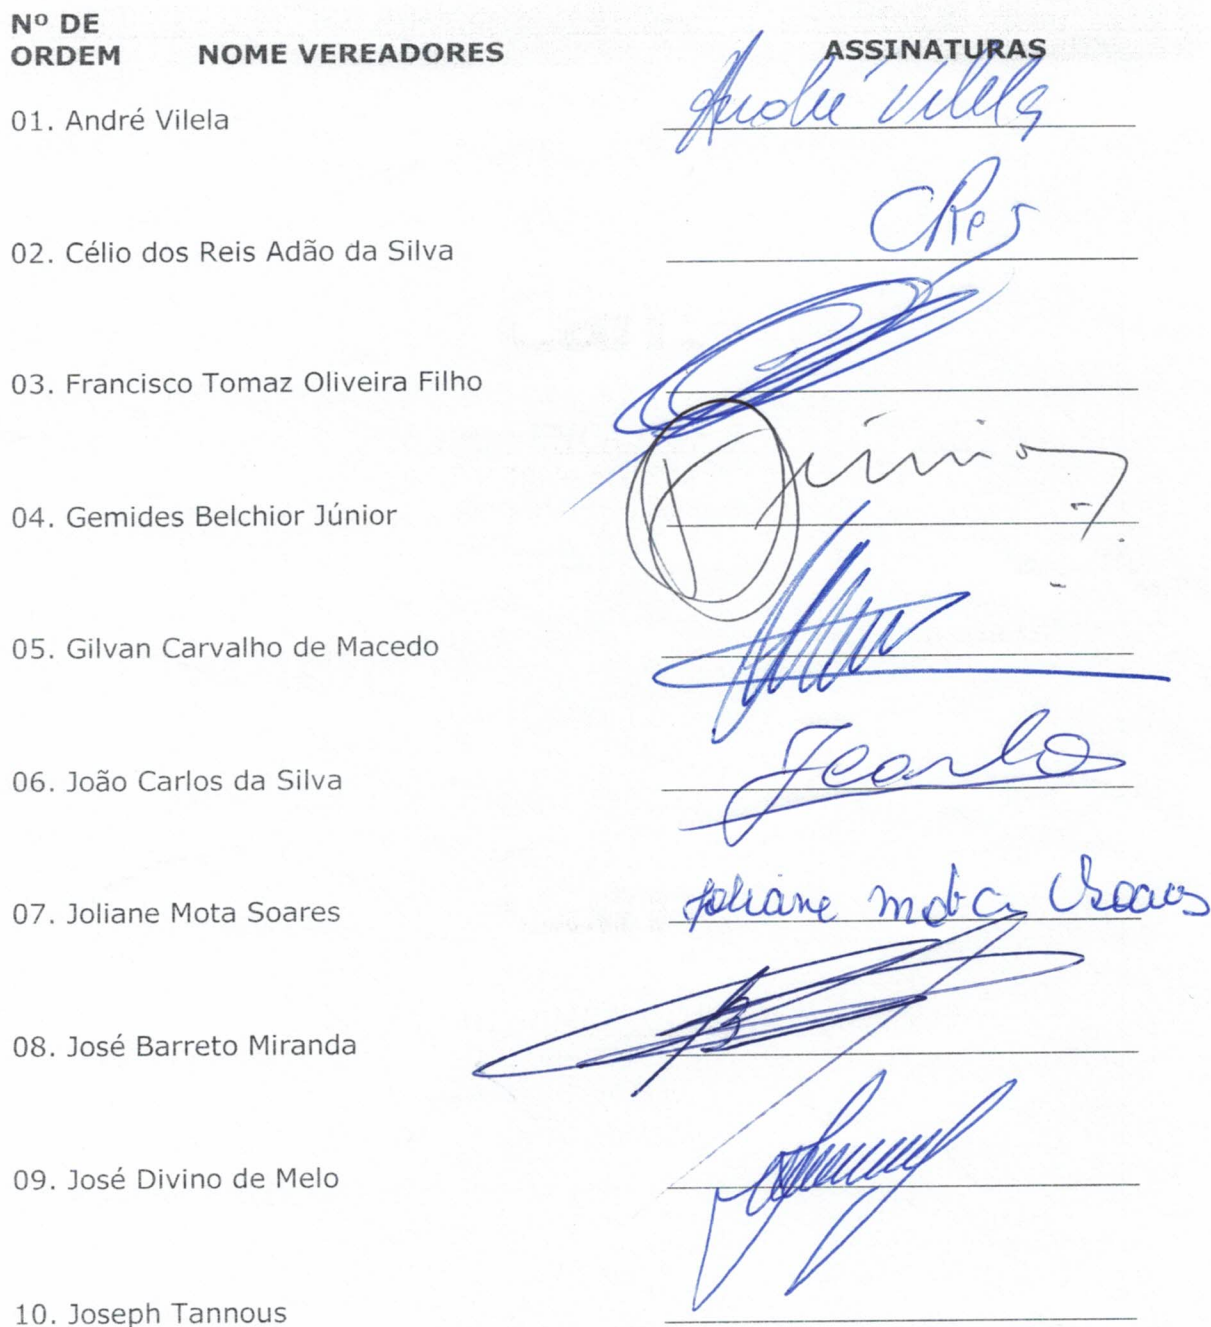 Nº DE
ORDEM NOME VEREADORES ASSINATURAS
01. André Vilela André Vilela
02. Célio dos Reis Adão da Silva CReis
03. Francisco Tomaz Oliveira Filho
04. Gemides Belchior Júnior Júnior
05. Gilvan Carvalho de Macedo
06. João Carlos da Silva Jcarlos
07. Joliane Mota Soares Joliane Mota Soares
08. José Barreto Miranda
09. José Divino de Melo
10. Joseph Tannous